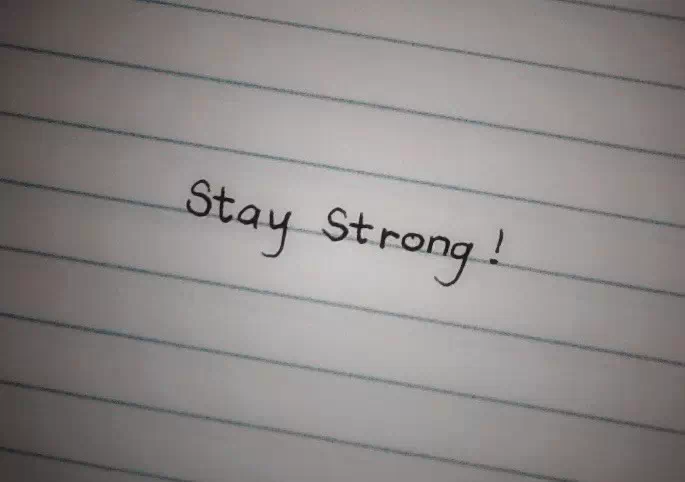 Stay Strong!